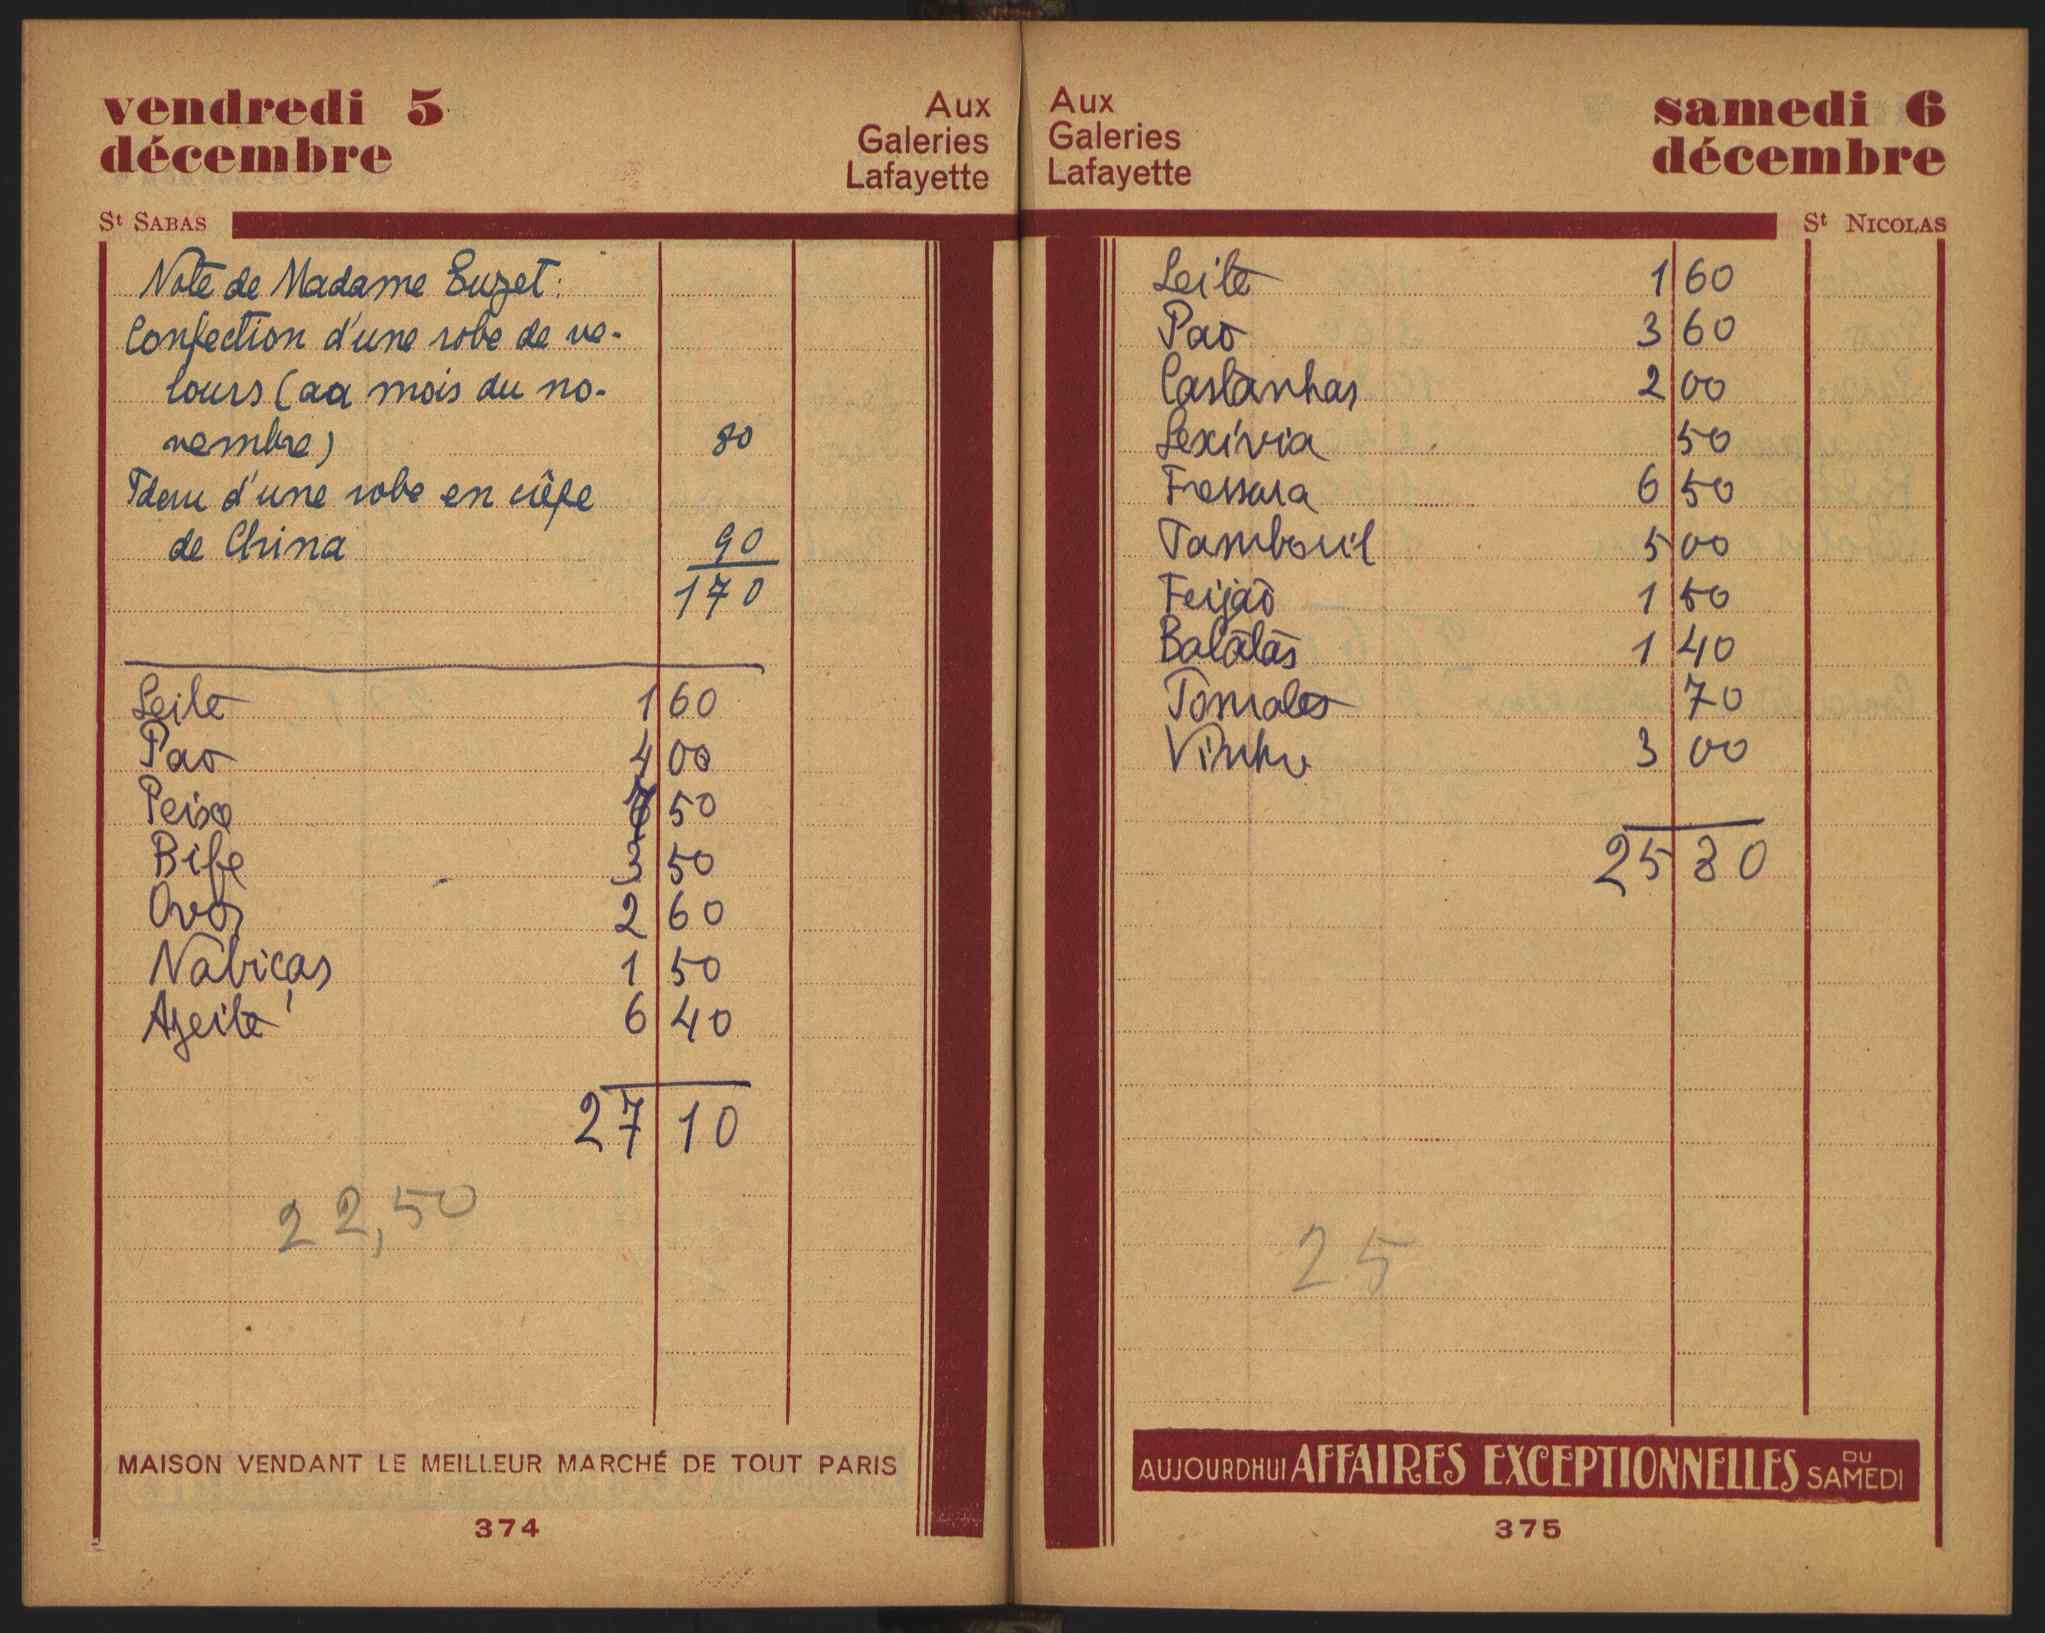 vendredi 5
décembre
Aux
Galeries
Lafayette
St SABAS
Note de Madame Euzet:
Confection d'une robe de ve-
lours (au mois du no-
vembre) 80
Idem d'une robe en crêpe
de China 90
170
Leite 1 60
Pao 4 00
Peixe 7 50
Bife 3 50
Ovos 2 60
Nabiças 1 50
Azeite 6 40
27 10
22,50
MAISON VENDANT LE MEILLEUR MARCHÉ DE TOUT PARIS
374
Aux
Galeries
Lafayette
samedi 6
décembre
St NICOLAS
Leite 1 60
Pao 3 60
Castanhas 2 00
Lexívia 50
Fressura 6 50
Tamboril 5 00
Feijão 1 50
Batatas 1 40
Tomates 70
Vinho 3 00
25 80
25
AUJOURDHUI AFFAIRES EXCEPTIONNELLES DU SAMEDI
375